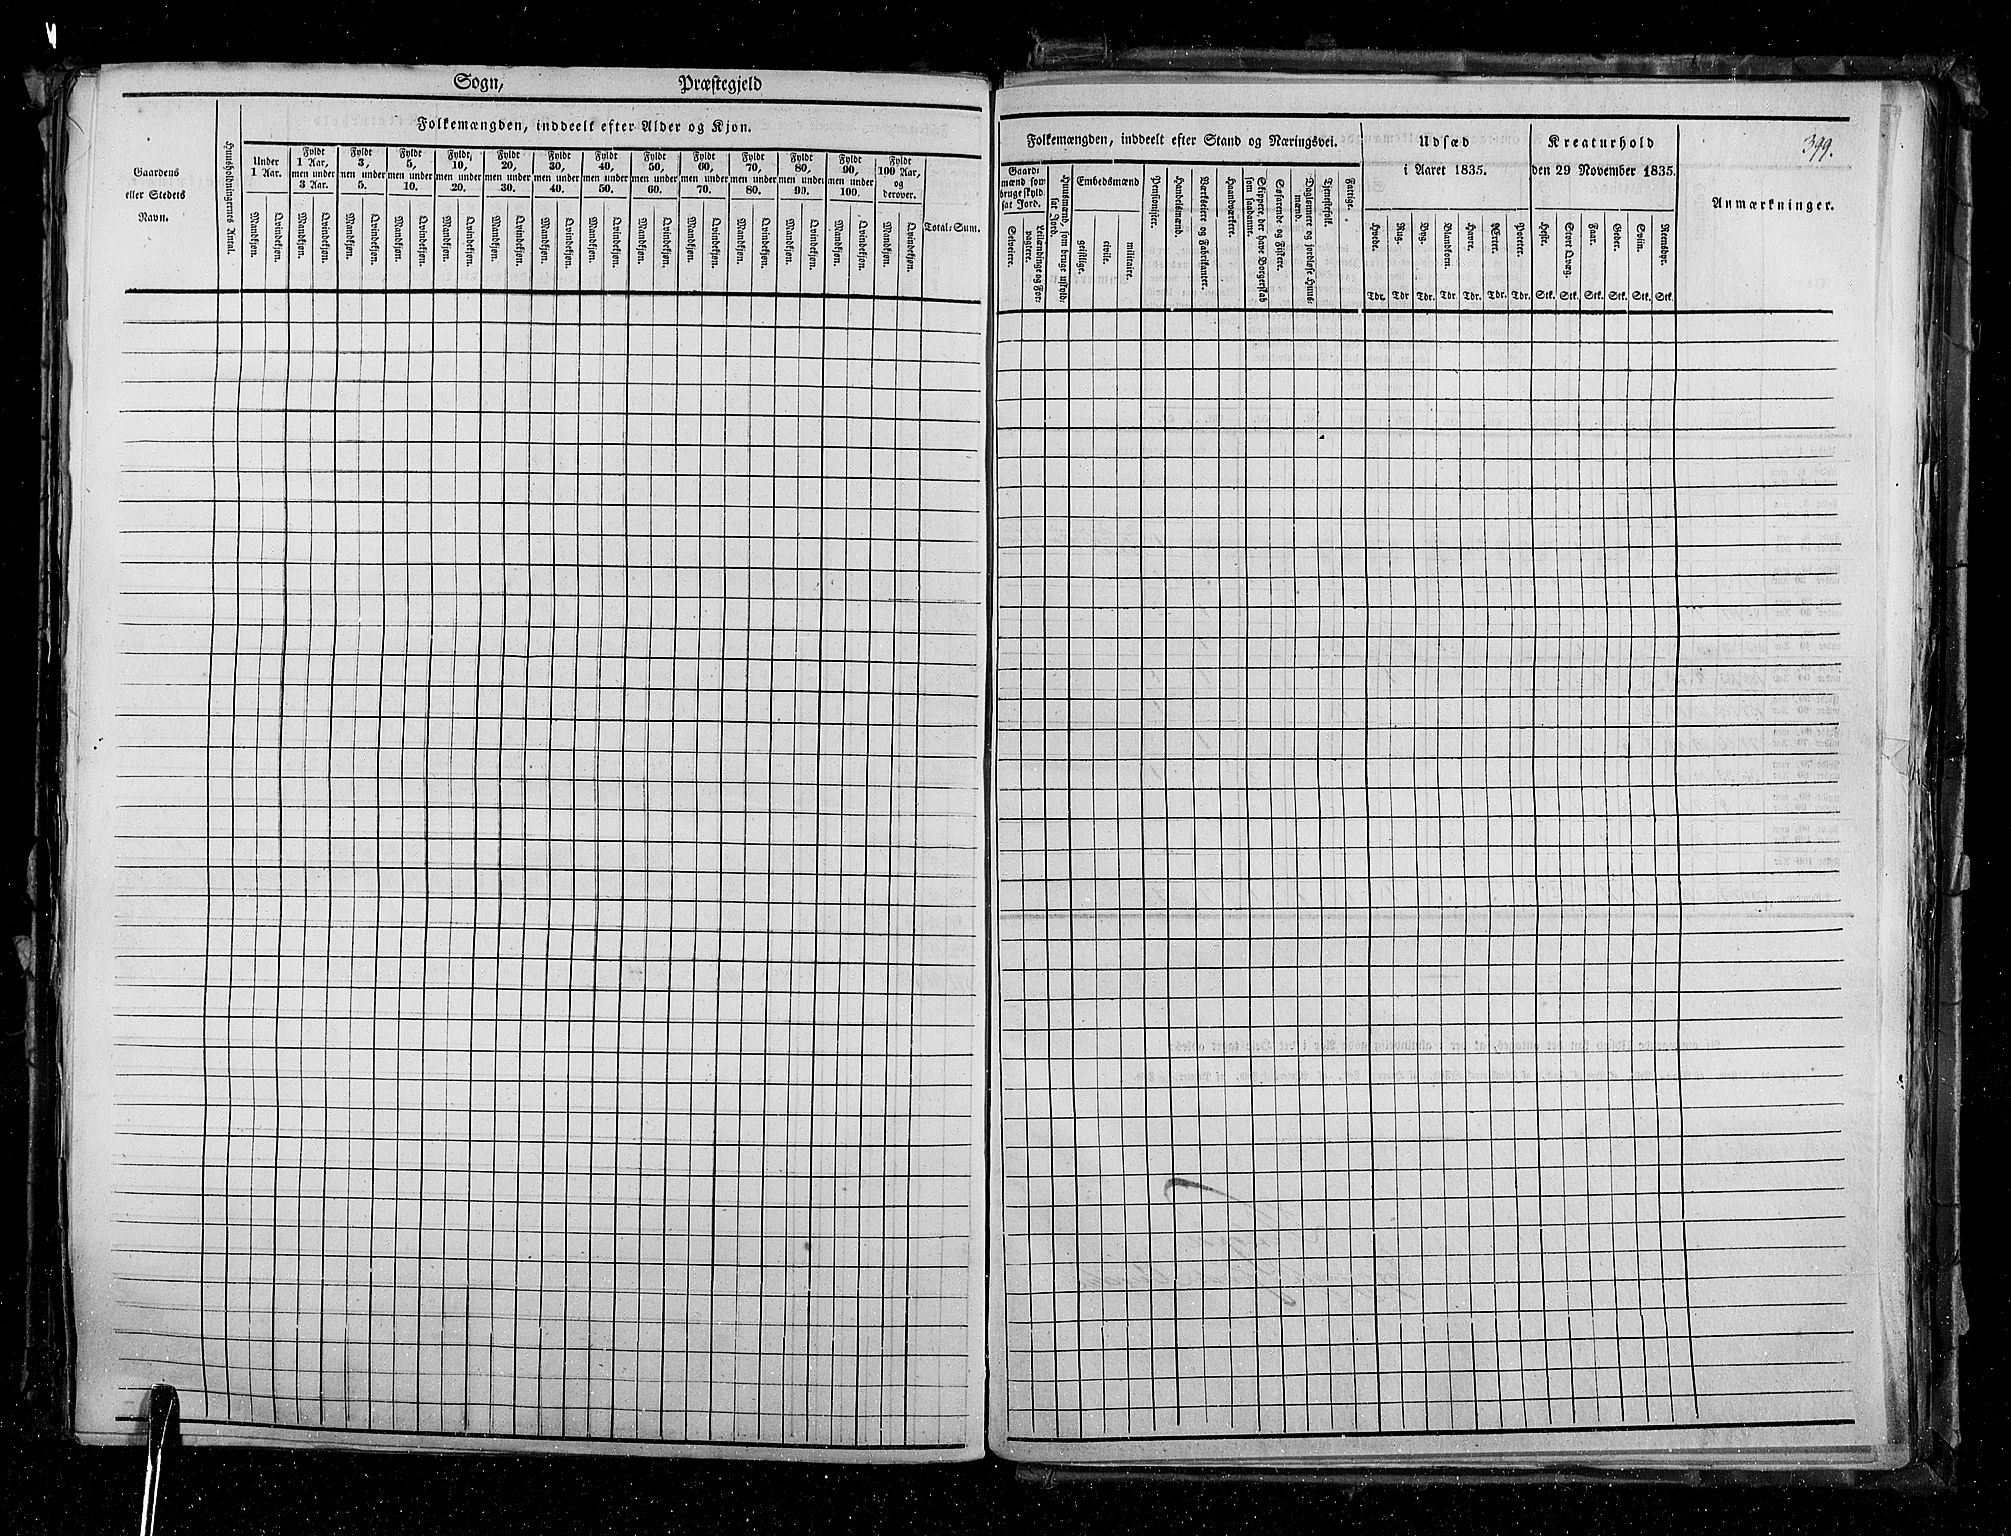 Sogn, Præstegjeld
Gaardens
eller Stedets
Navn.
Huusholdningernes Antal.
Folkemængden, inddeelt efter Alder og Kjøn.
Under
1 Aar.
Fyldt
1 Aar,
men under
3 Aar.
Fyldt
3,
men under
5.
Fyldt
5,
men under
10.
Fyldt
10,
men under
20.
Fyldt
20,
men under
30.
Fyldt
30,
men under
40.
Fyldt
40,
men under
50.
Fyldt
50,
men under
60.
Fyldt
60,
men under
70.
Fyldt
70,
men under
80.
Fyldt
80,
men under
90.
Fyldt
90,
men under
100.
Fyldt
100 Aar,
og
derover.
Mandkjøn. Qvindekjøn. Mandkjøn. Qvindekjøn. Mandkjøn. Qvindekjøn. Mandkjøn. Qvindekjøn. Mandkjøn. Qvindekjøn. Mandkjøn. Qvindekjøn. Mandkjøn. Qvindekjøn. Mandkjøn. Qvindekjøn. Mandkjøn. Qvindekjøn. Mandkjøn. Qvindekjøn. Mandkjøn. Qvindekjøn. Mandkjøn. Qvindekjøn. Mandkjøn. Qvindekjøn. Mandkjøn. Qvindekjøn.
Total-Sum.
399.
Folkemængden, inddeelt efter Stand og Næringsvei.
Gaard-
mænd som
bruge skyld-
sat Jord.
Selveiere.
Leilændinge og For-
pagtere.
Huusmænd, som bruge uskyld-
sat Jord.
Embedsmænd
geistlige.
civile.
militaire.
Pensionister.
Handelsmænd.
Værkseiere og Fabrikanter.
Haandværkere.
Skippere, der have Borgerskab
som saadanne.
Søfarende og Fiskere.
Daglønnere og jordløse Huus-
mænd.
Tjenestefolk.
Fattige.
Udsæd
i Aaret 1835.
Hvede.
Rug.
Byg.
Blandkorn.
Havre.
Ærter.
Poteter.
Tdr. Tdr Tdr. Tdr. Tdr. Tdr. Tdr.
Kreaturhold
den 29 November 1835.
Heste.
Stort Qvæg.
Faar.
Geder.
Sviin.
Reensdyr.
Stk. Stk. Stk. Stk. Stk. Stk.
Anmærkninger.